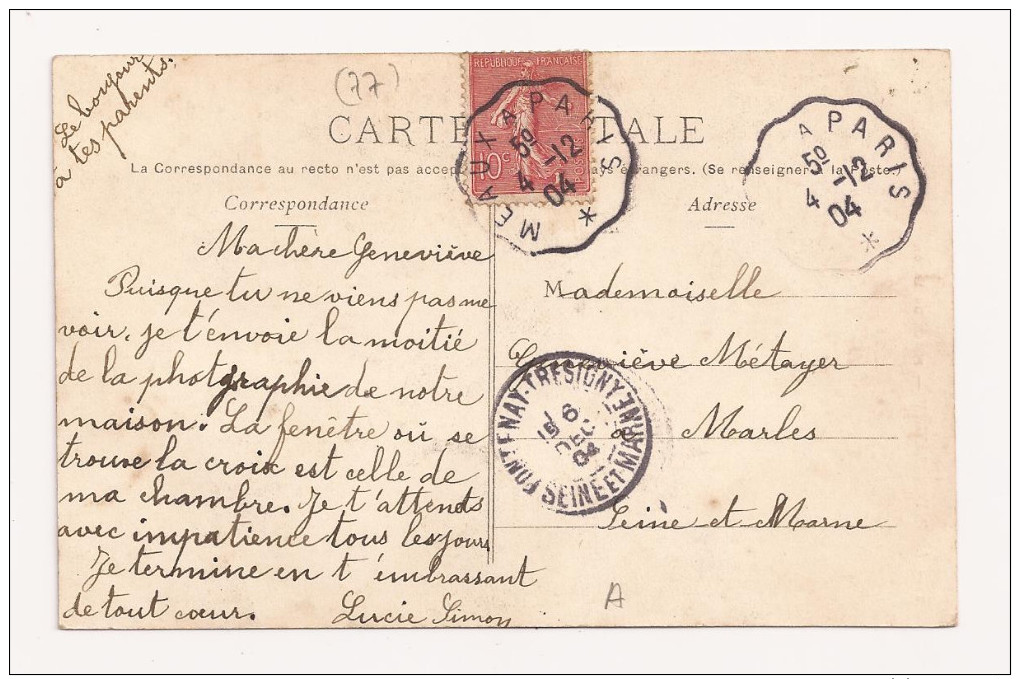 Le bonjour
à tes parents.
(77)
CARTE POSTALE
La Correspondance au recto n'est pas accep pays étrangers. (Se renseigner à la Poste.)
REPUBLIQUE FRANÇAISE
10c
POSTES
MEAUX A PARIS *
50
4 -12
04
A PARIS *
50
4 -12
04
Correspondance
Ma chère Geneviève
Puisque tu ne viens pas me
voir, je t'envoie la moitié
de la photgraphie de notre
maison. La fenêtre où se
trouve la croix est celle de
ma chambre. Je t'attends
avec impatience tous les jours
Je termine en t'embrassant
de tout cœur. Lucie Simon
Adresse
Mademoiselle
Geneviève Métayer
à Marles
Seine et Marne
FONTENAY-TRESIGNY
SEINE ET MARNE
6
DEC
04
A